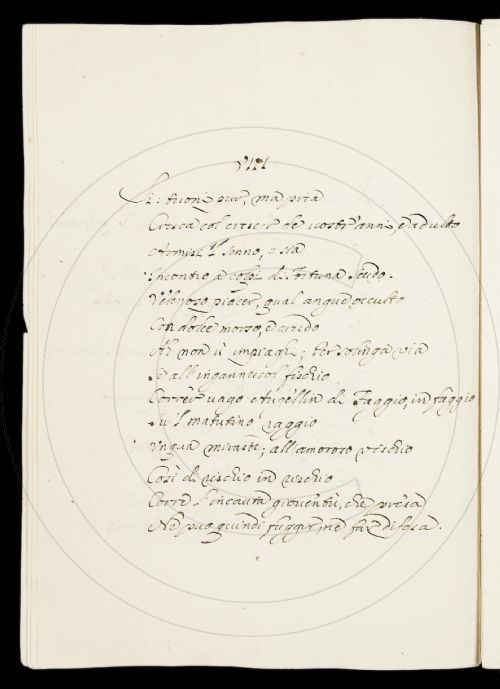 VIII
tuoni pur, ma pria
Cresca col crescer de vostr'anni, e adulto
il sonno, e sia
Incontro a colpi di Fortuna scudo.
piacer, qual angue occulto
Con dolce morso, e crudo
Ne non v'impiaghi; 
E all'ingannevol fischio
Correr vago Augellin di Faggio, in faggio
Su'l matutino raggio
miraste; all'amoroso vischio
Così di rischio in rischio
Corre l'incauta gioventù, che presa
Nè può quindi fuggir, nè far difesa.